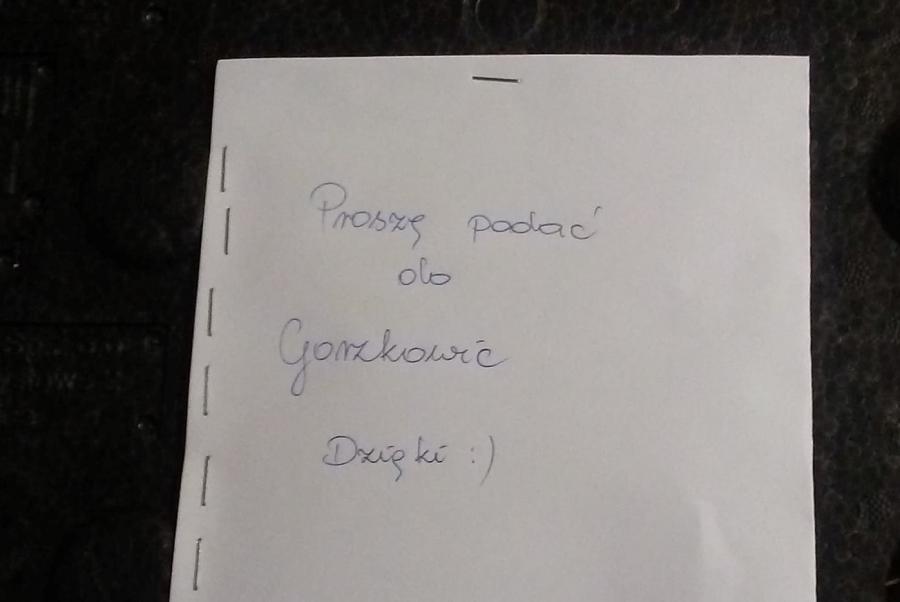 Proszę podać
do
Gorzkowic
Dzięki :)